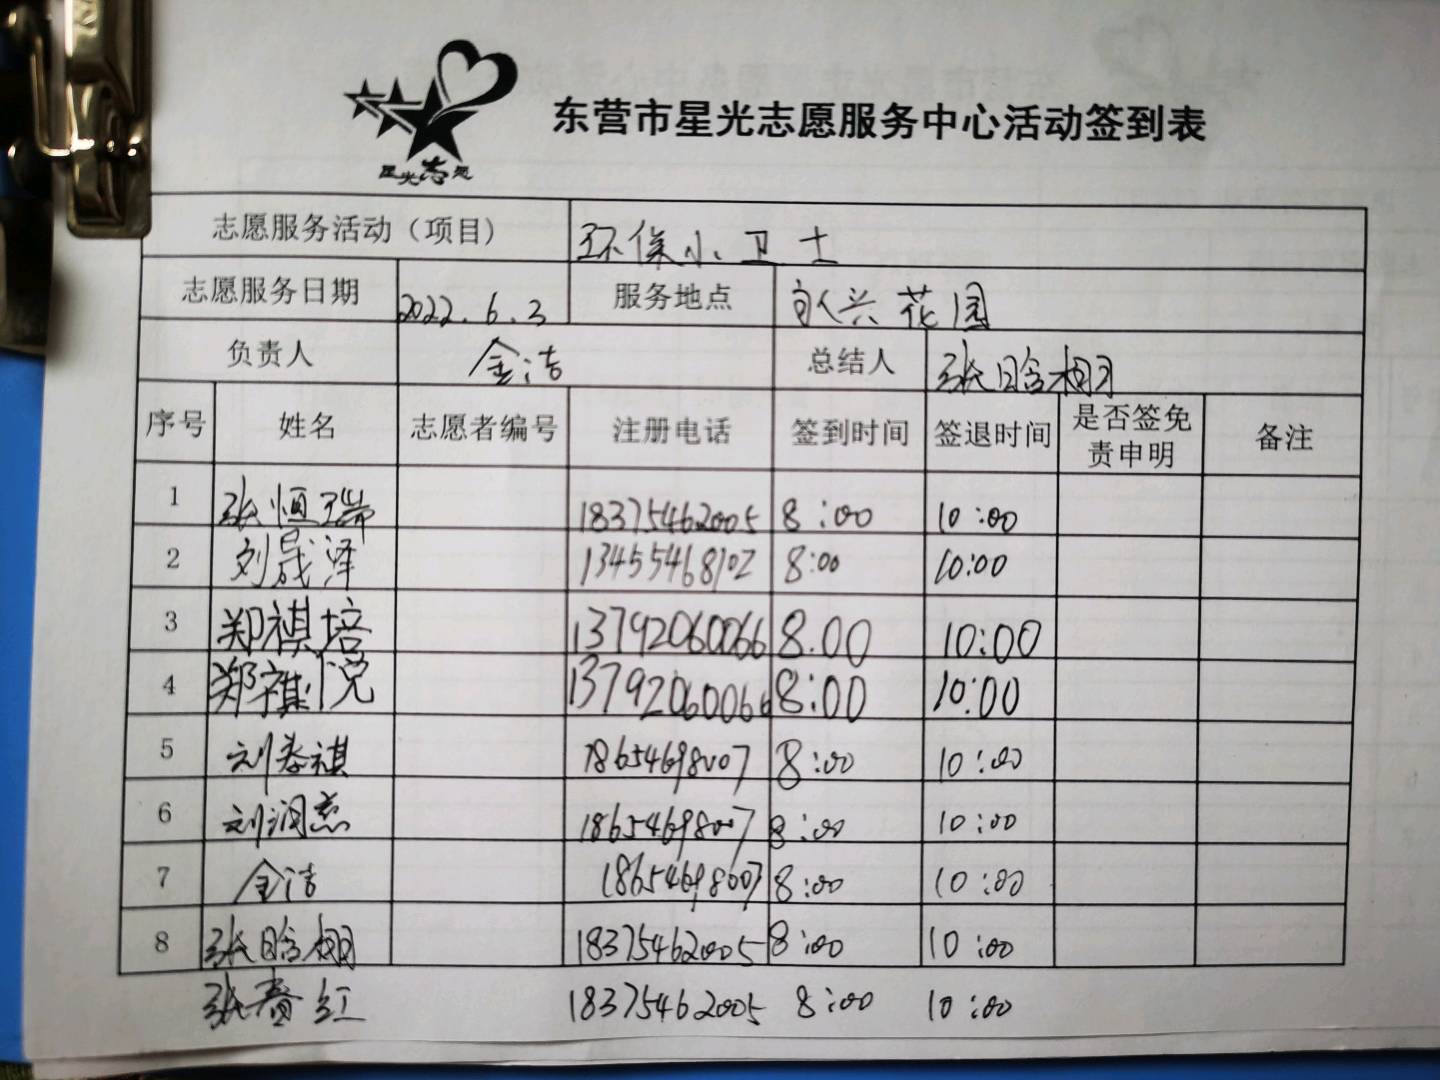 星光志愿
东营市星光志愿服务中心活动签到表
志愿服务活动（项目） 环保小卫士
志愿服务日期 2022.6.3 服务地点 兴花园
负责人 金洁 总结人 张晗栩
序号 姓名 志愿者编号 注册电话 签到时间 签退时间 是否签免责申明 备注
1 张恒瑞 18375462005 8:00 10:00
2 刘晟泽 13455468102 8:00 10:00
3 郑祺培 13792060066 8.00 10:00
4 郑祺悦 13792060066 8:00 10:00
5 刘泰祺 18654698007 8:00 10:00
6 刘润熹 18654698007 8:00 10:00
7 金洁 18654698007 8:00 10:00
8 张晗栩 18375462005 8:00 10:00
张春红 18375462005 8:00 10:00